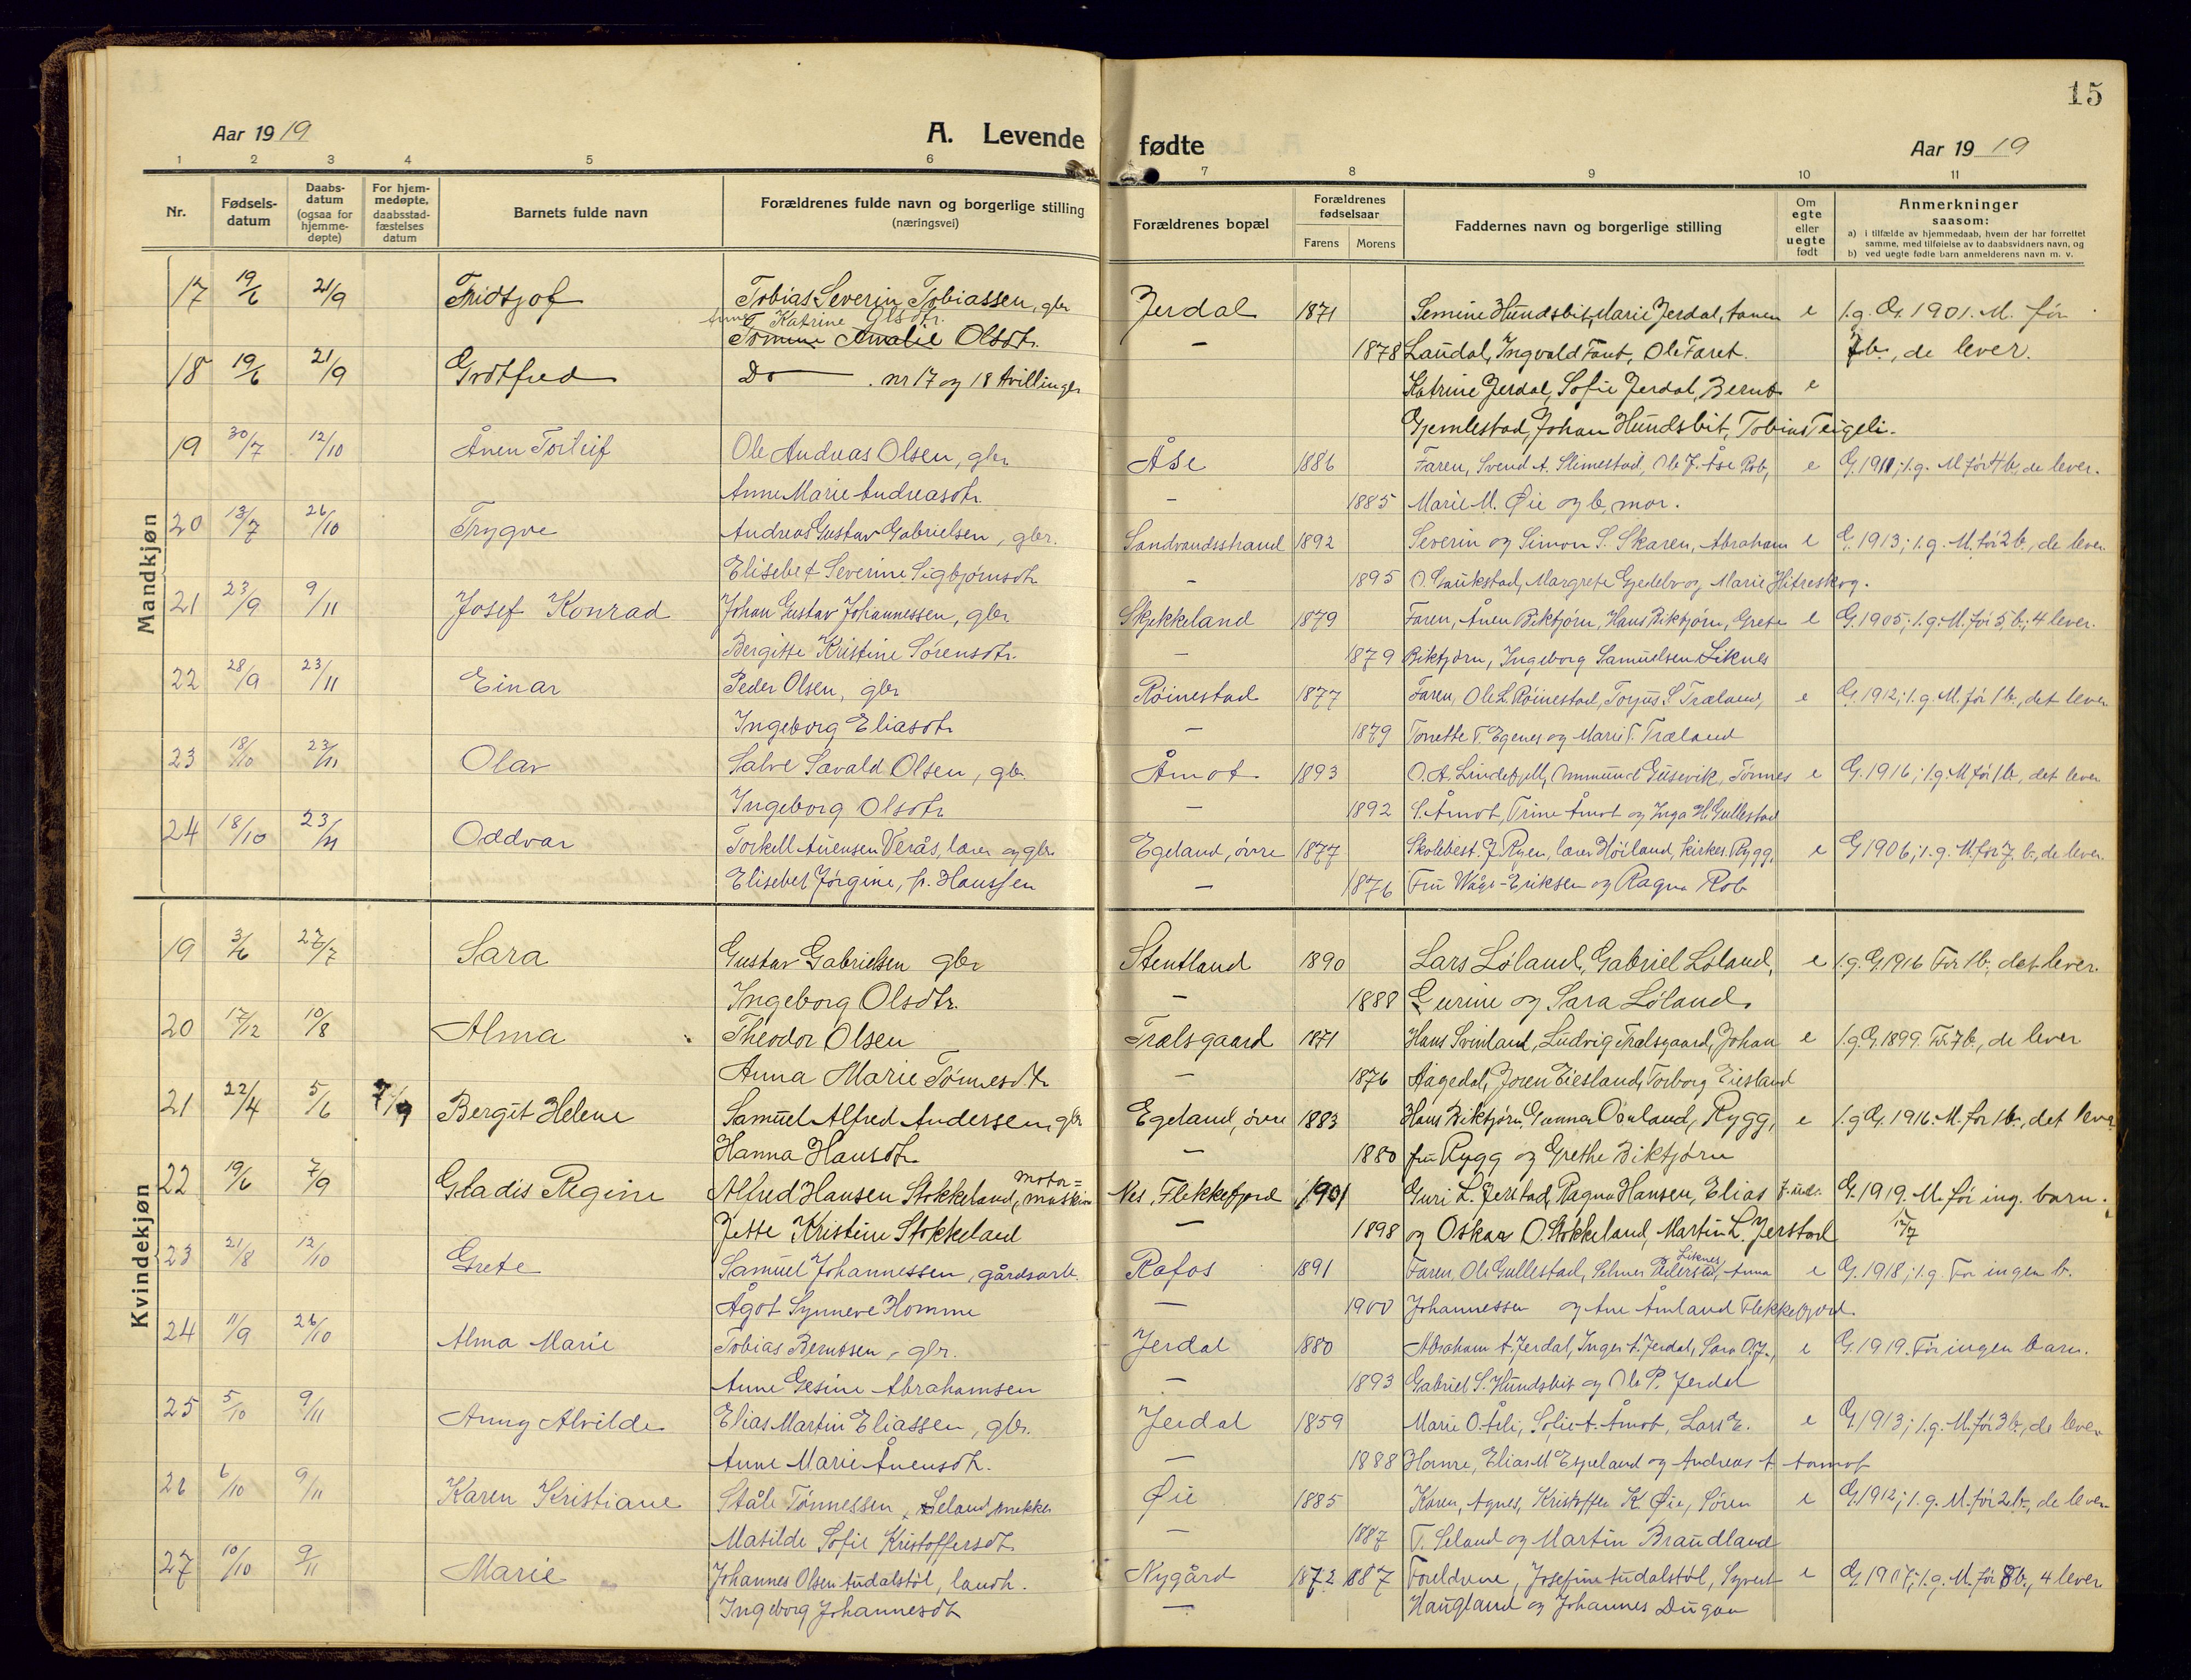 15
Aar 1919 A. Levende fødte Aar 1919
1 2 3 4 5 6 7 8 9 10 11
Nr. Fødselsdatum Daabsdatum (ogsaa for hjemmedøpte) For hjemmedøpte, daabsstadfæstelses datum Barnets fulde navn Forældrenes fulde navn og borgerlige stilling (næringsvei) Forældrenes bopæl Forældrenes fødselsaar Farens Morens Faddernes navn og borgerlige stilling Om egte eller uegte født Anmerkninger saasom: a) i tilfælde av hjemmedaab, hvem der har forrettet samme, med tilføielse av to daabsvidners navn, og b) ved uegte fødte barn anmelderens navn m. v.
Mandkjøn
17 19/6 21/9 Fridtjof Tobias Severin Tobiassen, gbr Jerdal 1871 Semine Hundsbit, Marie Jerdal, Aanen e 1.g. G. 1901. M. før
Anne T. Katrine Olsdtr.
Tomine Amalie Olsdtr. — 1878 Laudal, Ingvald Faret, Ole Faret. 7 b., de lever.
18 19/6 21/9 Grotfred Do — . nr 17 og 18 tvillinger Katrine Jerdal, Sofie Jerdal, Bernt e
Gjemlestad, Johan Hundsbit, Tobias Teigeli.
19 30/7 12/10 Ånen Torleif Ole Andreas Olsen, gbr Åse 1886 Faren, Svend A. Slimestad, Ole J. Åse Rob, e G. 1911; 1.g. M. før 4 b, de lever.
Anne Marie Andreasdtr — 1885 Marie M. Øie og b. mor.
20 13/7 26/10 Trygve Andreas Gustav Gabrielsen, gbr. Sandvandsstrand 1892 Severin og Simon S. Skaren, Abraham e G. 1913; 1.g. M. før 2 b., de lever.
Elisebet Severine Sigbjørnsdtr — 1895 O. Gaukstad, Margrete Gjedebo og Marie Hitreskog.
21 23/9 9/11 Josef Konrad Johan Gustav Johannessen, gbr Skjekkeland 1879 Faren, Ånen Biktjørn, Hans Biktjørn, Grete e G. 1905; 1.g. M. før 5 b.; 4 lever.
Bergitte Kristine Sørensdtr. — 1879 Biktjørn, Ingeborg Samuelsen Liknes
22 28/9 23/11 Einar Peder Olsen, gbr Røinestad 1877 Faren, Ole L. Røinestad, Torjus S. Træland, e G. 1912; 1.g. M. før 1 b., det lever
Ingeborg Eliasdtr — 1879 Tonette T. Egenes og Marie T. Træland
23 18/10 23/11 Olav Salve Sævald Olsen, gbr. Åmot 1893 O. A. Lindefjell, Ommund Gusevik, Tønnes e G. 1916; 1.g. M. før 1 b, det lever
Ingeborg Olsdtr — 1892 S. Åmot, Trine Åmot og Inga H. Gullestad
24 18/10 23/11 Oddvar Torkell Ånensen Verås, lærer og gbr. Egeland, øvre 1877 Skolebest. J. Ryen, lærer Høiland, kirkes. Rygg, e G 1906; 1.g. M. før 7 b., de lever.
Elisebet Jørgine, f. Hanssen — 1876 Fru Wågs-Eriksen og Ragna Rob
Kvindekjøn
19 3/6 27/7 Sara Gustav Gabrielsen gbr Stentland 1890 Lars Løland, Gabriel Løland, e 1.g. G. 1916 Før 1 b; det lever.
Ingeborg Olsdtr. — 1888 Gurine og Sara Løland.
20 17/12 10/8 Alma Theodor Olsen Trælsgaard 1871 Hans Svinland, Ludvig Trælsgaard, Johan e 1.g. G. 1899. Før 7 b., de lever
Anna Marie Tønnesdtr — 1876 Aagedal, Joren Eiesland, Torborg Eiesland
21 22/4 5/6 7/9 Bergit Helene Samuel Alfred Andersen, gbr Egeland, øvre 1883 Hans Biktjørn, Gunnar Omland, Rygg, e 1.g. G. 1916. M. før 1 b., det lever
Hanna Hansdtr. — 1880 fru Rygg og Grethe Biktjørn
22 19/6 7/9 Gladis Regine Alfred Hansen Stokkeland, motor=maskin Nes, Flekkefjord 1901 Guri L. Jerstad, Ragna Hansen, Elias G. 1919. M. før ing. barn.
Jette Kristine Stokkeland — 1898 og Oskar O. Stokkeland, Martin L. Jerstad 12/7
23 21/8 12/10 Grete Samuel Johannessen, gårdsarb. Rafos 1891 Faren, Ole Gullestad, Selmer Pedersen, Liknes, Anna e G. 1918; 1.g. Før ingen b.
Ågot Synneve Homme — 1900 Johannessen og Ane Åmland Flekkefjord.
24 11/9 26/10 Alma Marie Tobias Berntsen, gbr. Jerdal 1880 Abraham A. Jerdal, Inger A. Jerdal, Sara O. J., e G. 1919. Før ingen barn.
Anne Gesine Abrahamsen — 1893 Gabriel S. Hundsbit og Ole P. Jerdal
25 5/10 9/11 Anny Alvilde Elias Martin Eliassen, gbr. Jerdal 1859 Marie O. Åli, Sofie A. Åmot, Lars E. e G. 1913; 1.g. M. før 3 b., de lever
Anne Marie Ånensdtr. — 1888 Hamre, Elias M Espeland og Andreas A. Aamot
26 6/10 9/11 Karen Kristiane Ståle Tønnessen Seland, snekker Øie 1885 Karen, Agnes, Kristoffer K Øie, Søren e G. 1912; 1.g. M. før 2 b., de lever
Matilde Sofie Kristoffersdtr. — 1887 T. Seland og Martin Braudland
27 10/10 9/11 Marie Johannes Olsen Audalstøl, landh. Nygård 1872 1887 Foreldrene, Josefine Audalstøl, Syvert e G. 1907; 1.g. M. før 8 b., 4 lever
Ingeborg Johannesdtr — Haugland og Johannes Dugan